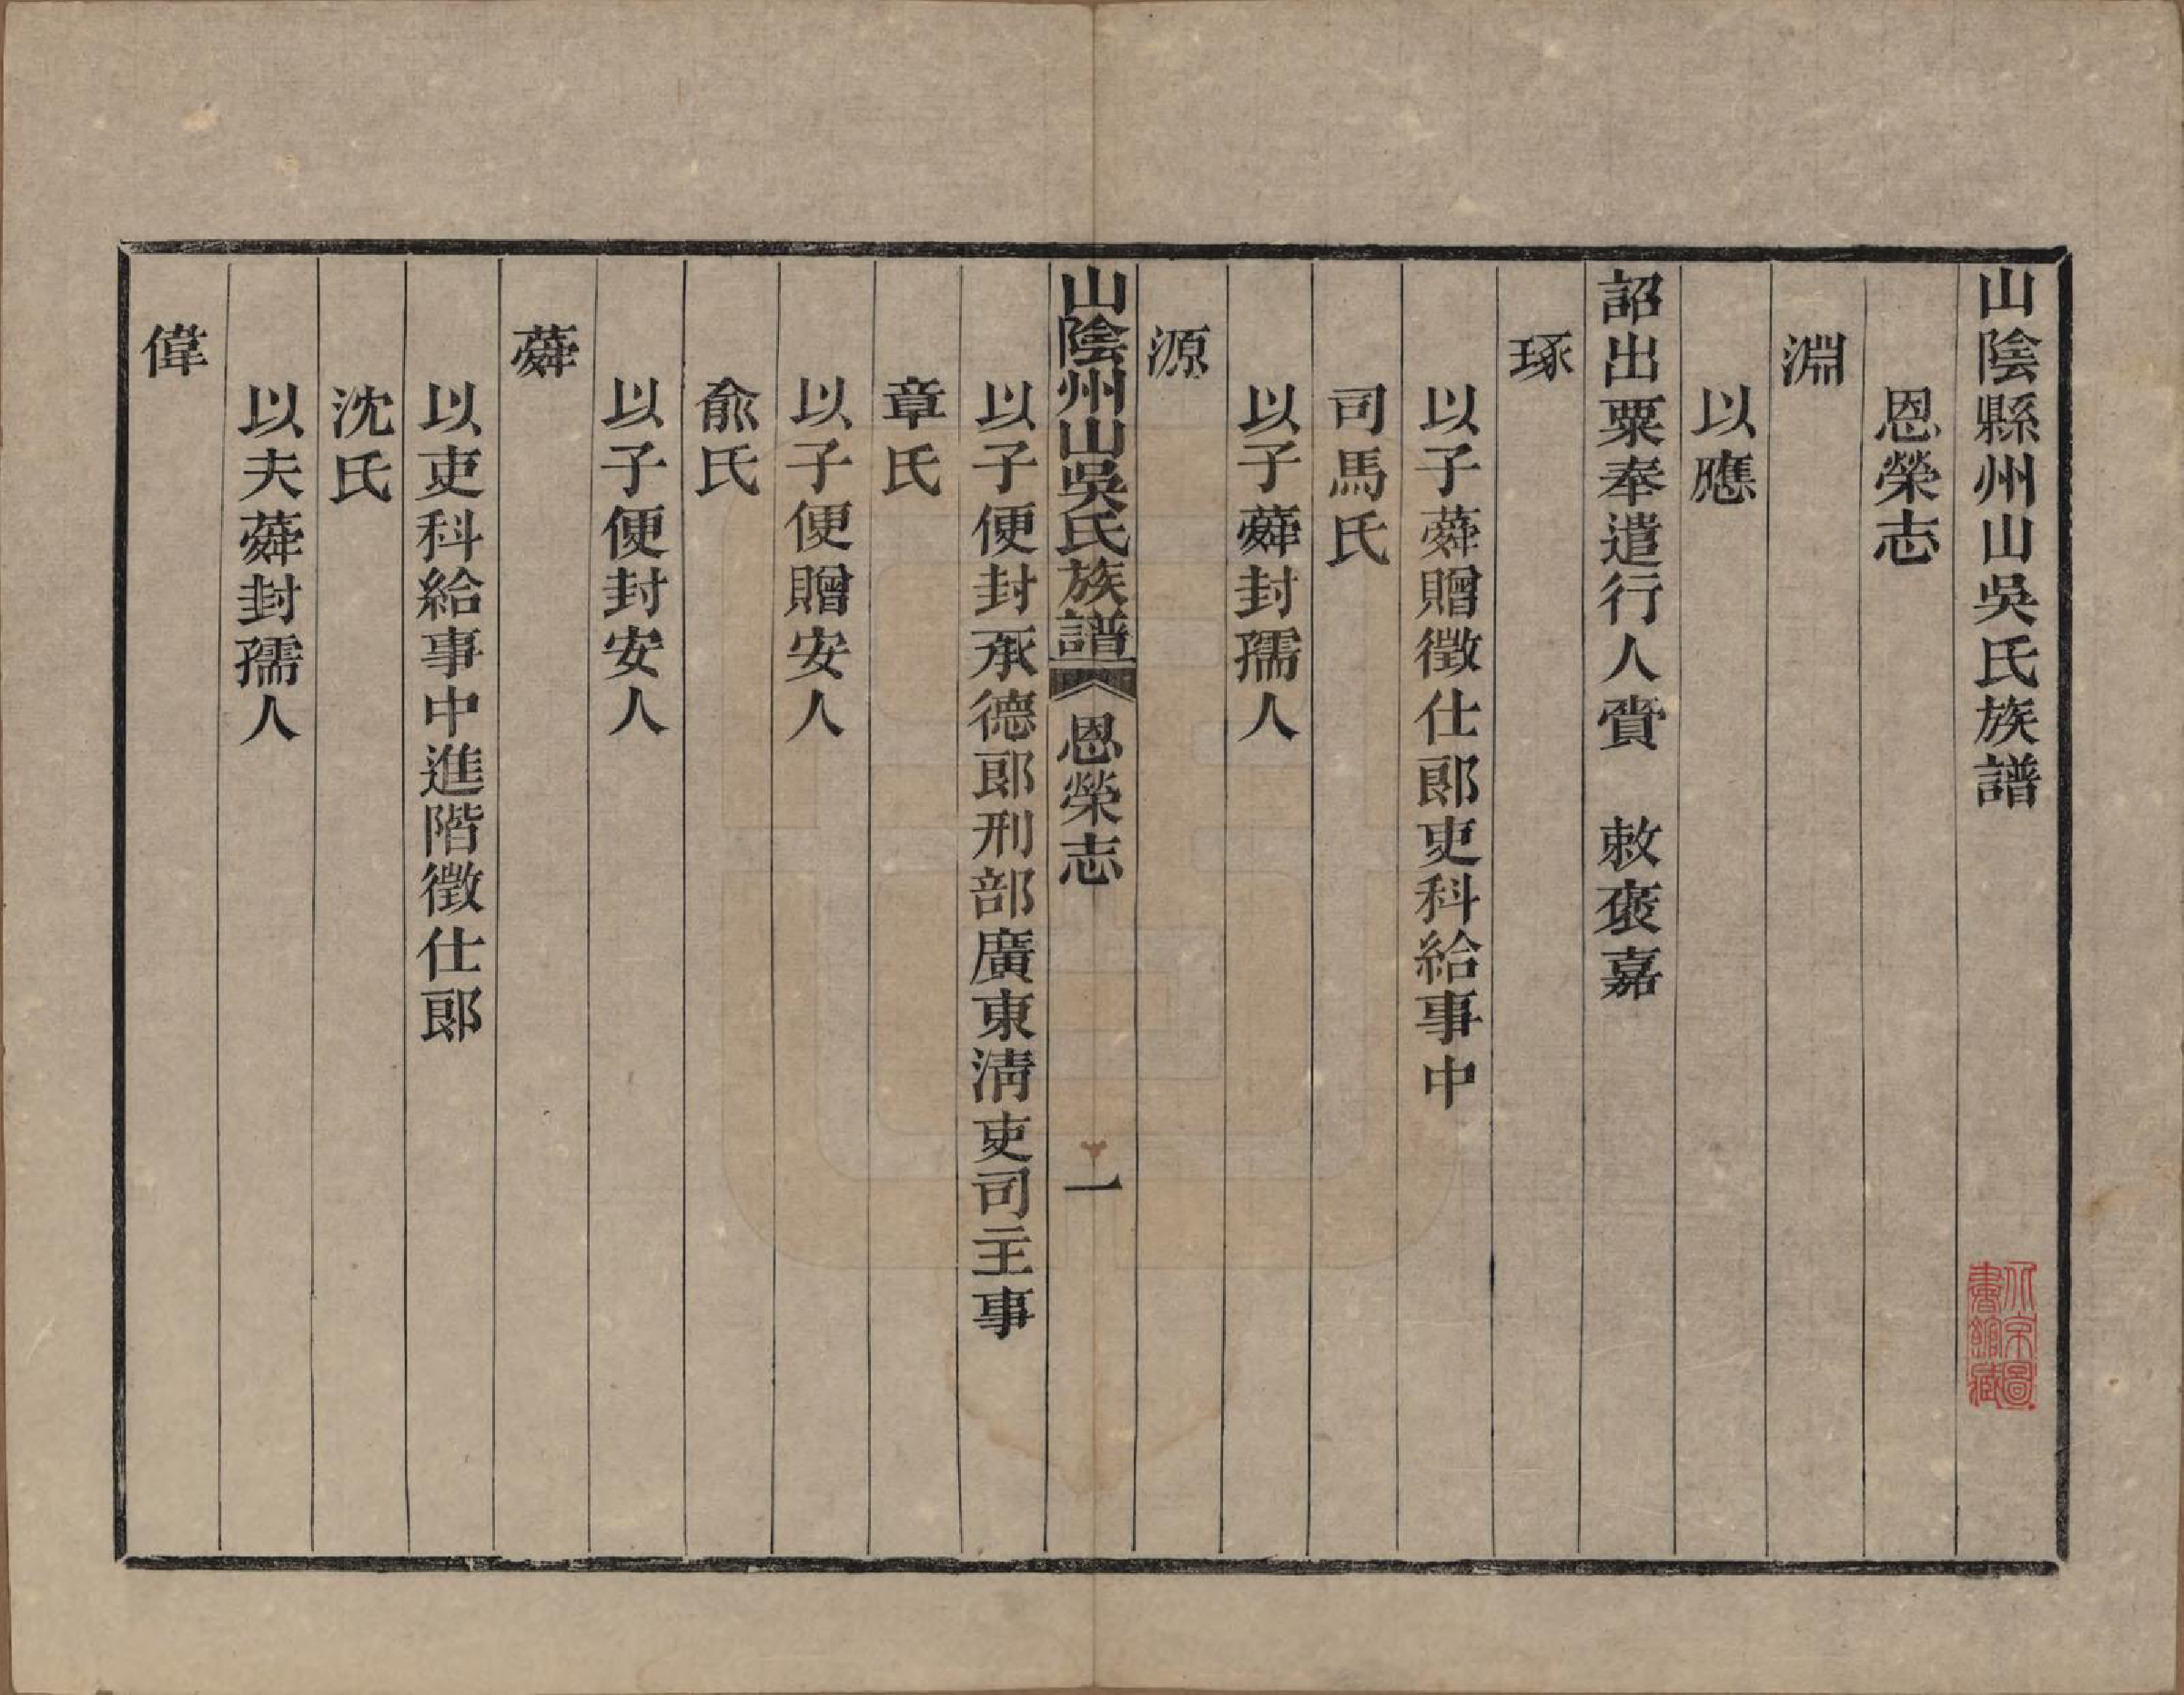 山陰縣州山吳氏族譜
恩榮志
淵
以應
詔出粟奉遣行人賫　敕褒嘉
琢
以子蕣贈徵仕郎吏科給事中
司馬氏
以子蕣封孺人
源
山陰州山吳氏族譜 恩榮志 一
以子便封承德郎刑部廣東淸吏司主事
章氏
以子便贈安人
兪氏
以子便封安人
蕣
以吏科給事中進階徵仕郎
沈氏
以夫蕣封孺人
偉
北京圖
書館藏